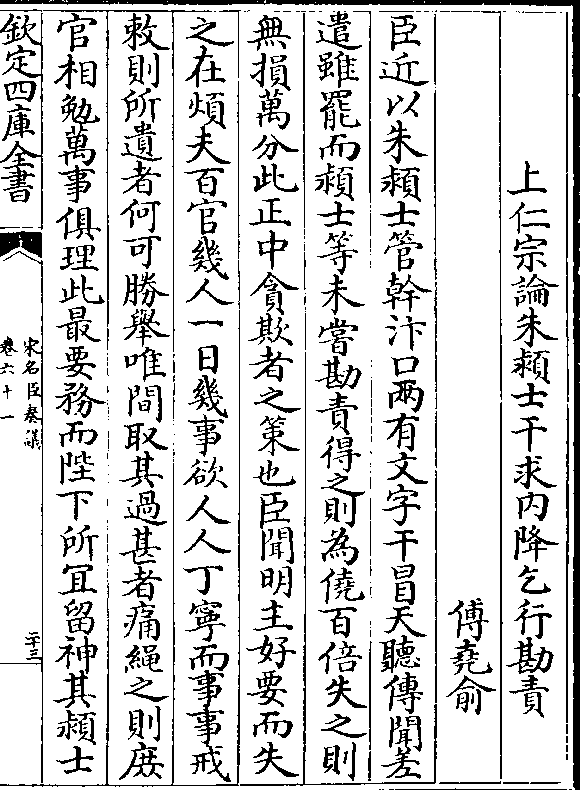 上仁宗論朱頴士干求内降乞行勘責
傅堯俞
臣近以朱頴士管幹汴口兩有文字干冒天聽傳聞差
遣雖罷而頴士等未嘗勘責得之則為僥百倍失之則
無損萬分此正中貪欺者之策也臣聞明主好要而失
之在煩夫百官幾人一日幾事欲人人丁寧而事事戒
敕則所遺者何可勝舉唯間取其過甚者痛繩之則庶
官相勉萬事俱理此最要務而陛下所宜留神其頴士
欽定四庫全書
宋名臣奏議
卷六十一
二十三